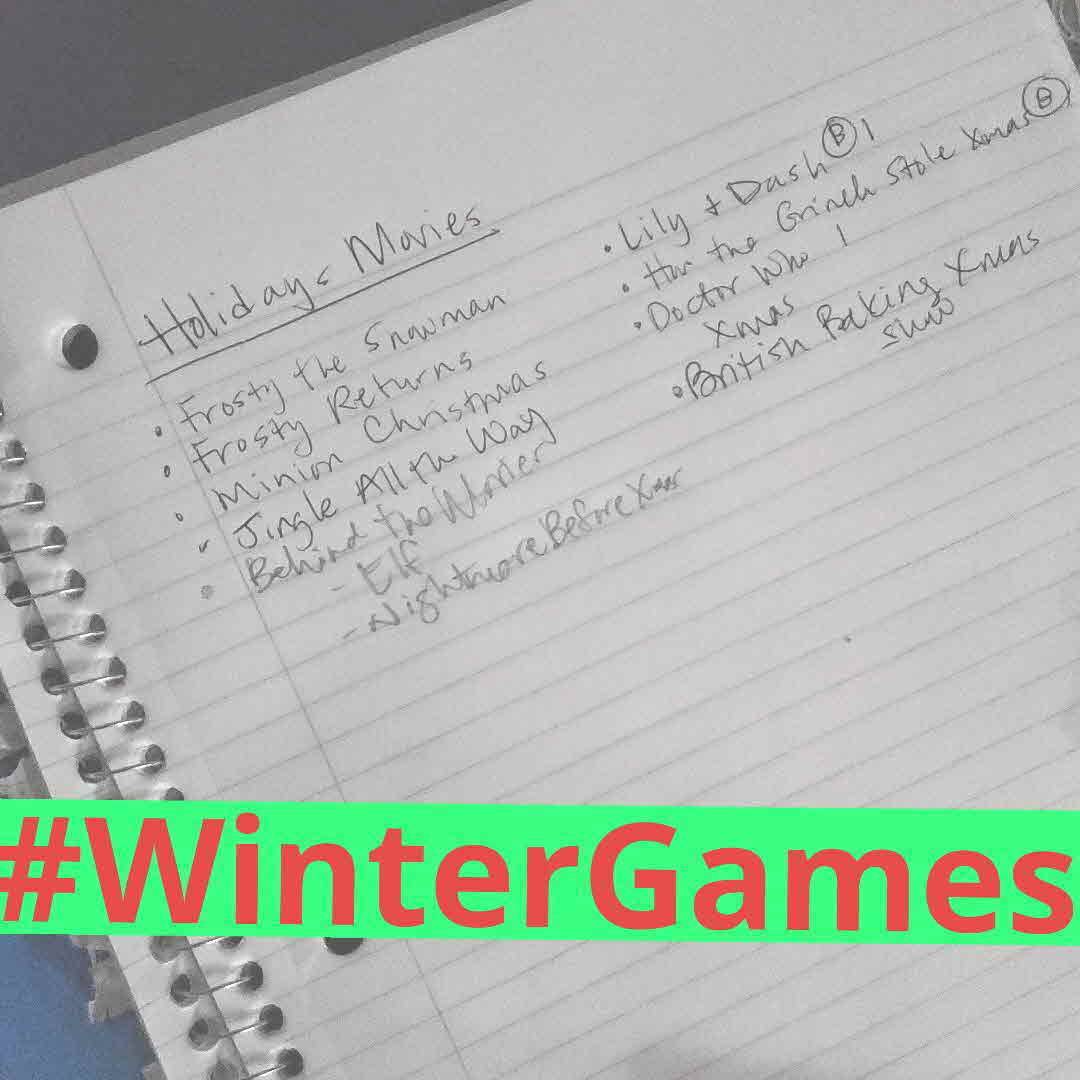 Holidays Movies
• Frosty the Snowman
• Frosty Returns
• Minion Christmas
• Jingle All the Way
• Behind the Movies
- Elf
- Nightmare Before Xmas
• Lily & Dash Ⓑ 1
• How the Grinch Stole Xmas Ⓑ
• Doctor Who 1
Xmas
• British Baking Xmas
Show
#WinterGames